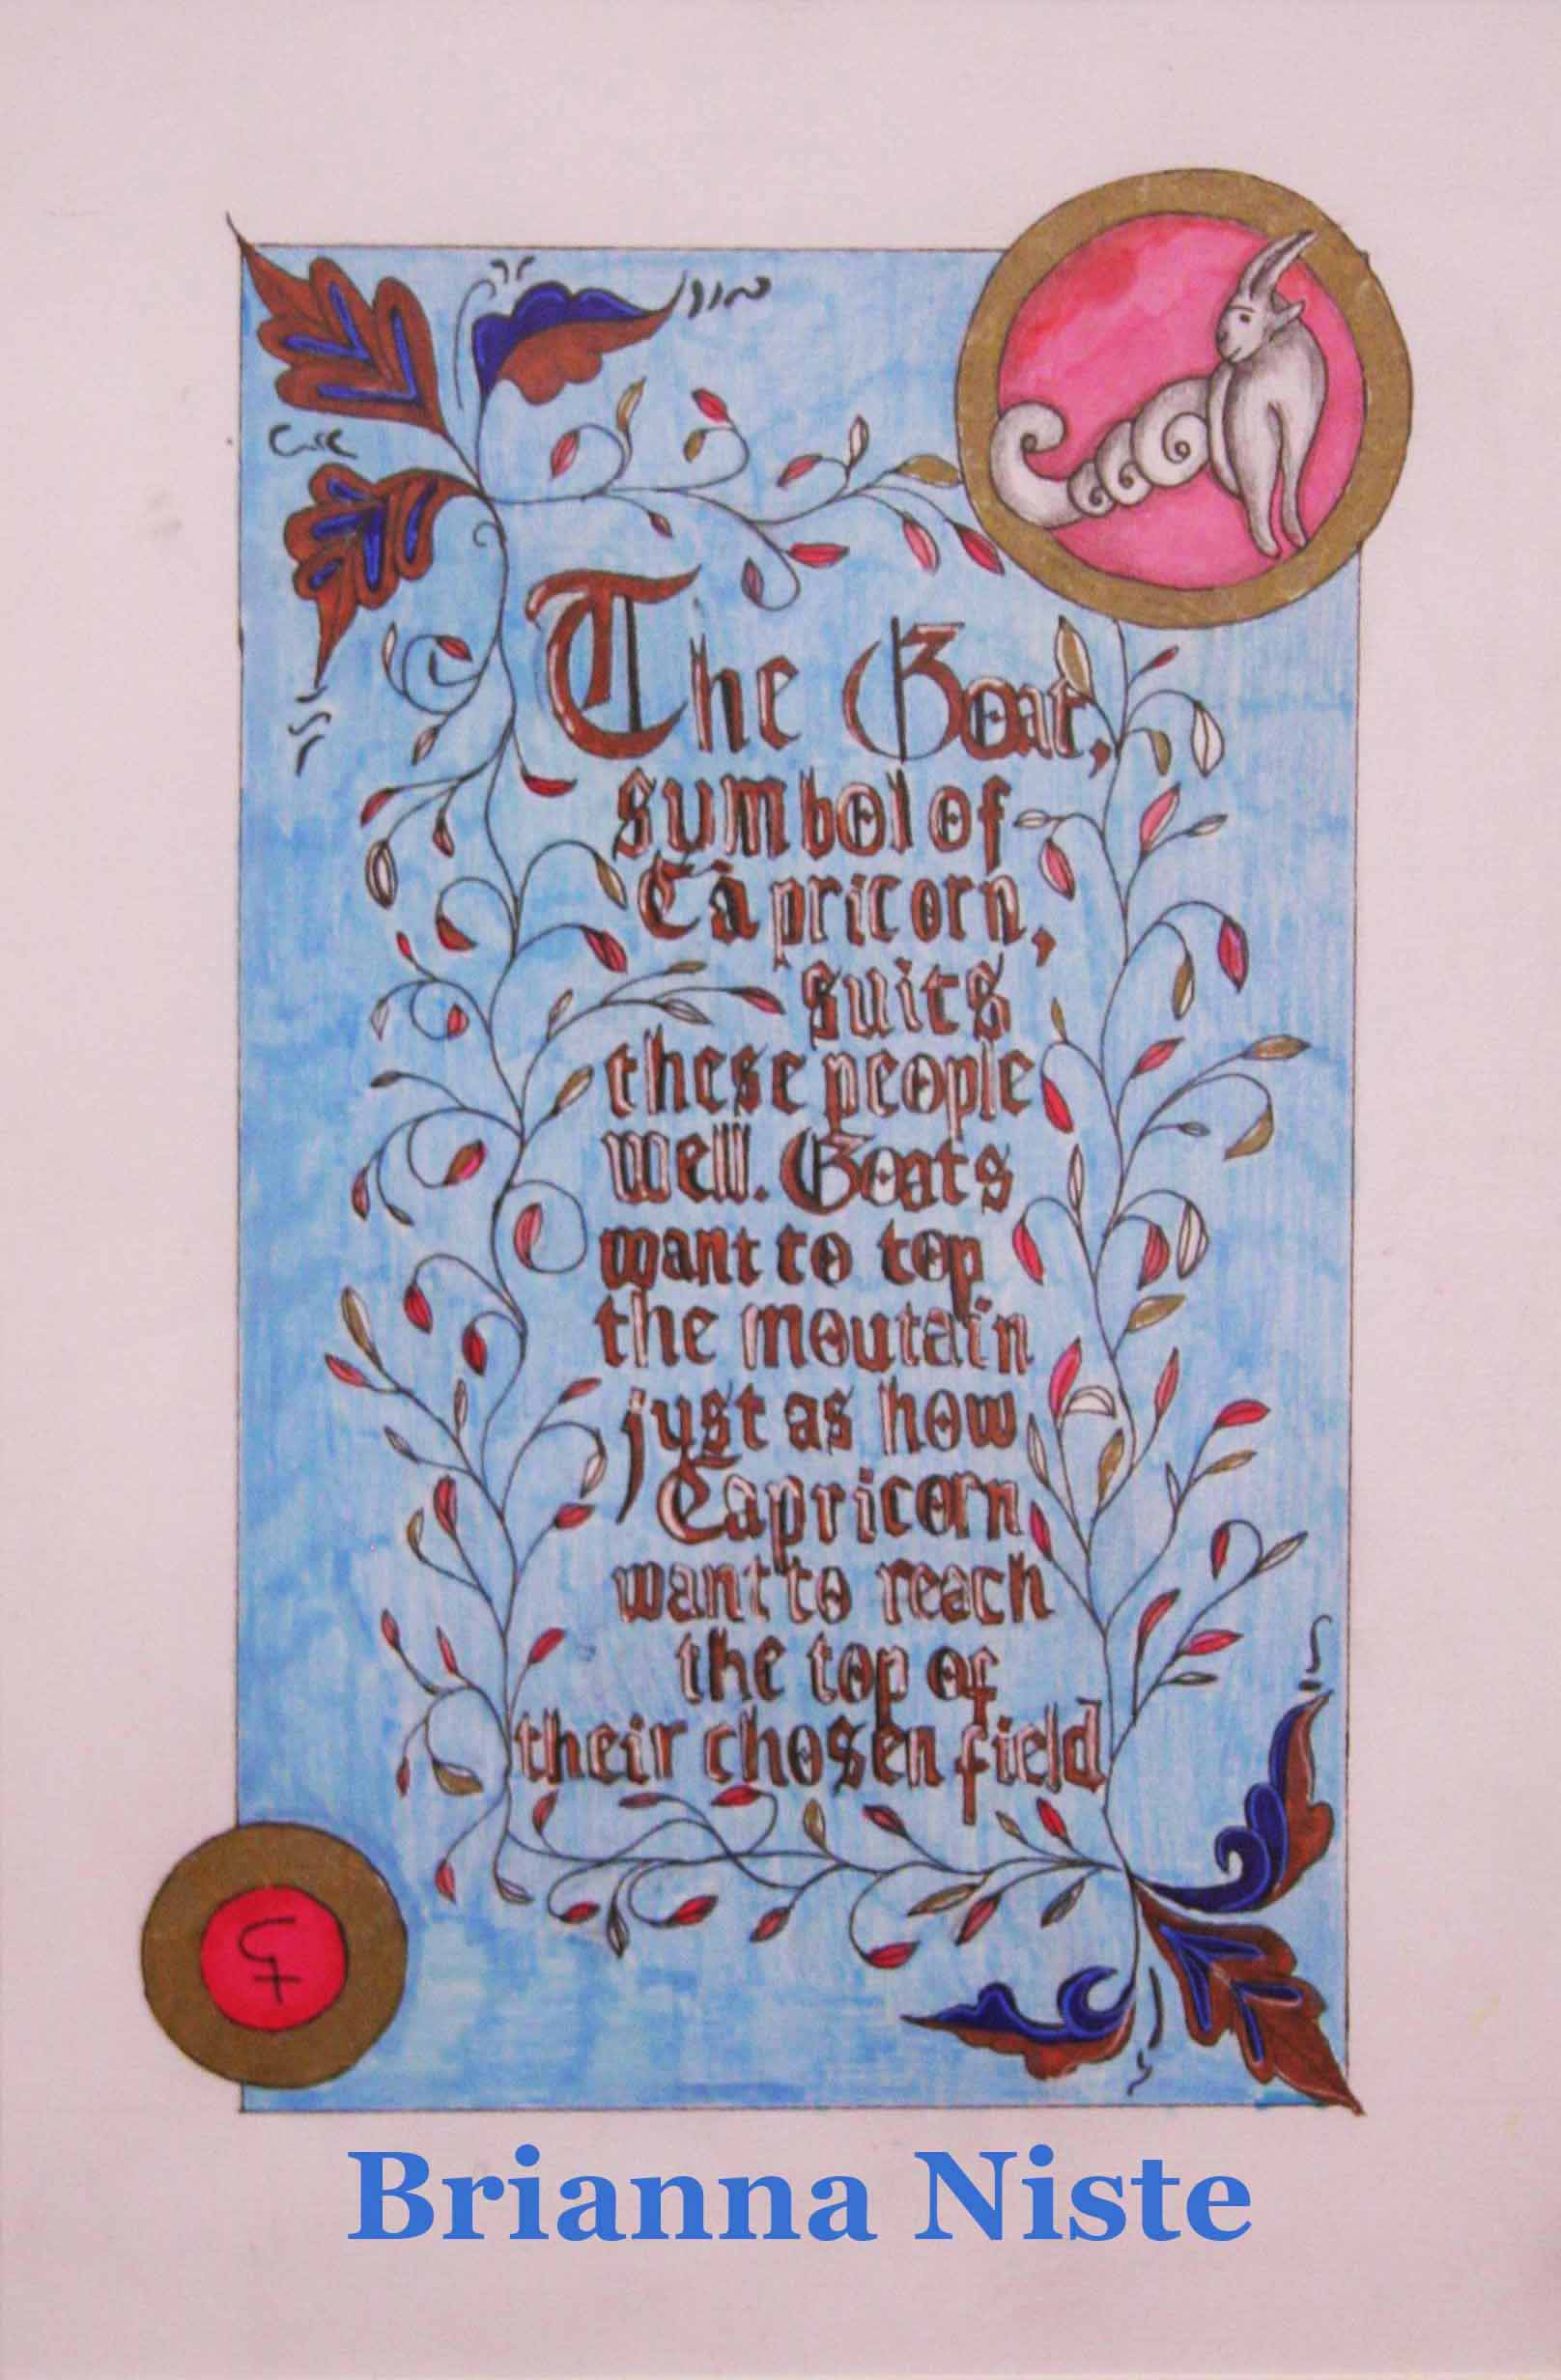 The Goat,
symbol of
Capricorn,
suits
these people
well. Goats
want to top
the moutain
just as how
Capricorn
want to reach
the top of
their chosen field
Brianna Niste